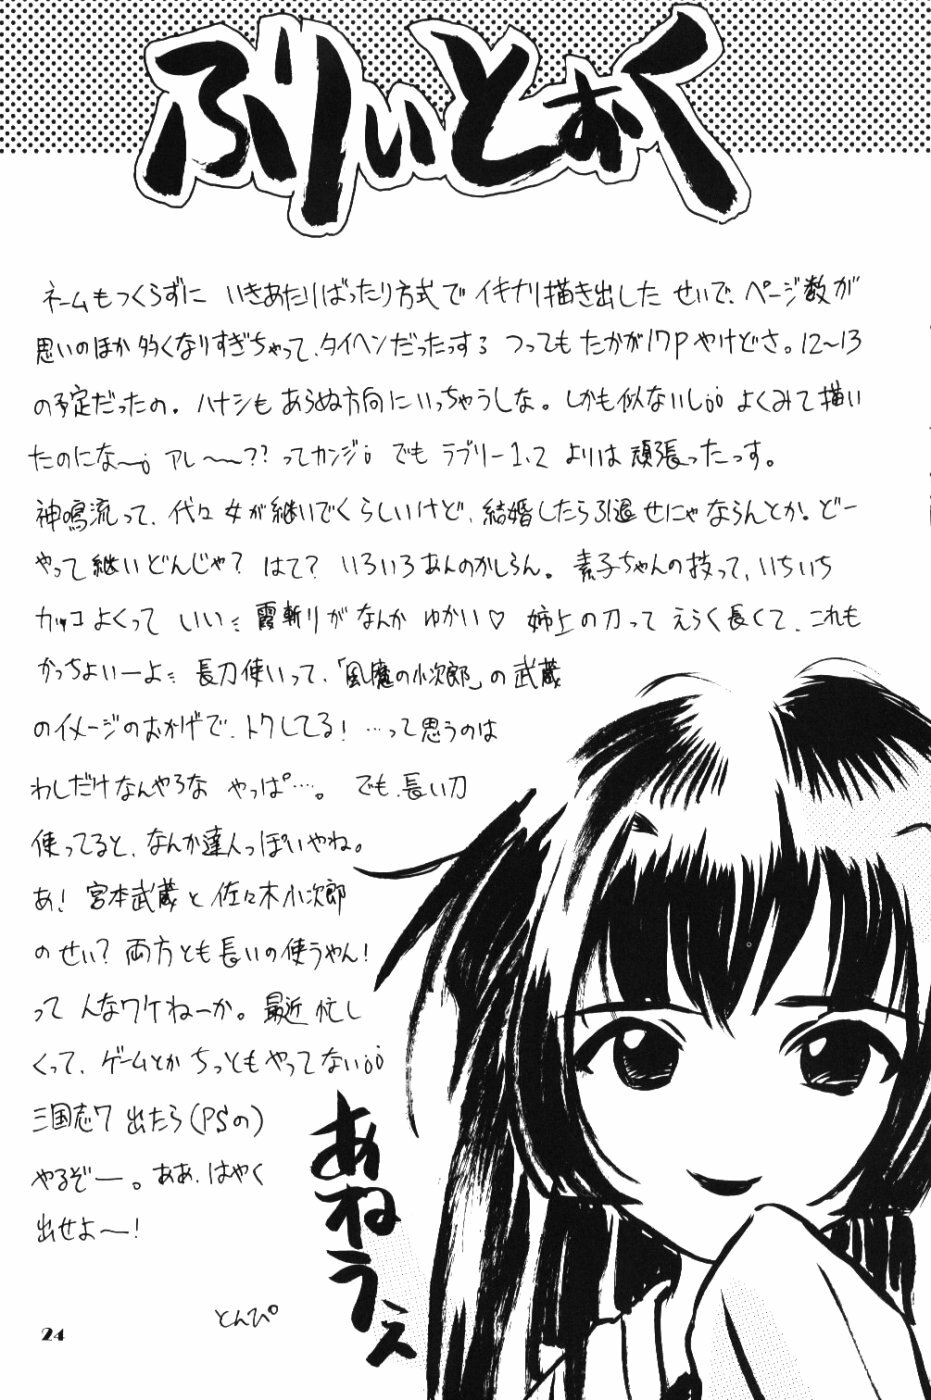 ふりぃとぉく
ネームもつくらずに いきあたりばったり方式で イキナリ描き出した せいで、ページ数が
思いのほか 多くなりすぎちゃって、タイヘンだったっする つってもたかが17Pやけどさ。12〜13
の予定だったの。ハナシも あらぬ方向にいっちゃうしな。しかも似ないし。。よくみて描い
たのにな〜。アレ〜〜??ってカンジ。でも ラブリー1、2 よりは 頑張ったっす。
神鳴流って、代々女が継いでくらしいけど、結婚したら引退せにゃならんとか。どー
やって継いどんじゃ? はて? いろいろあんのかしらん。素子ちゃんの技って、いちいち
カッコよくって いい ミ 霞斬りがなんか ゆかい♡ 姉上の刀って えらく長くて、これも
かっちょいーよミ 長刀使いって、「風魔の小次郎」の武蔵
のイメージのおかげで、トクしてる! …って思うのは
わしだけなんやろな やっぱ…。でも、長い刀
使ってると、なんか達人っぽいやね。
あ! 宮本武蔵と佐々木小次郎
のせい? 両方とも長いの使うやん!
って んなワケねーか。最近忙し
くって、ゲームとか ちっともやってない。。
三国志7 出たら(PSの)
やるぞー。ああ、はやく
出せよ〜!
とんぴ
あねうえ
24